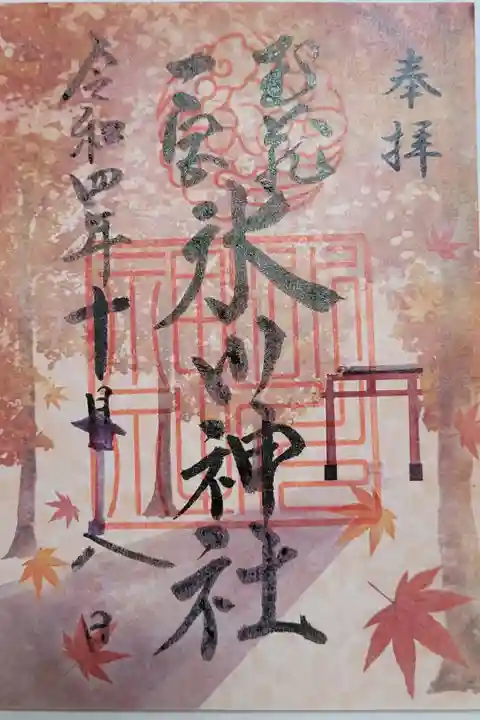 奉拝
武蔵
一宮
氷川神社
令和四年十月十八日